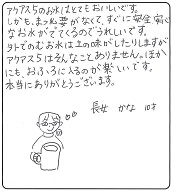 アクアス5のお水はとてもおいしいです。
しかも、まったく要がなくて、すぐに安全
なお水がでてくるのでうれしいです。
外でのむお水は土の味がしたりしますが
アクアス5はそんなことありません。ほか
にも、おふろに入るのが楽しいです。
本当にありがとうございます。
長女 かな 10才